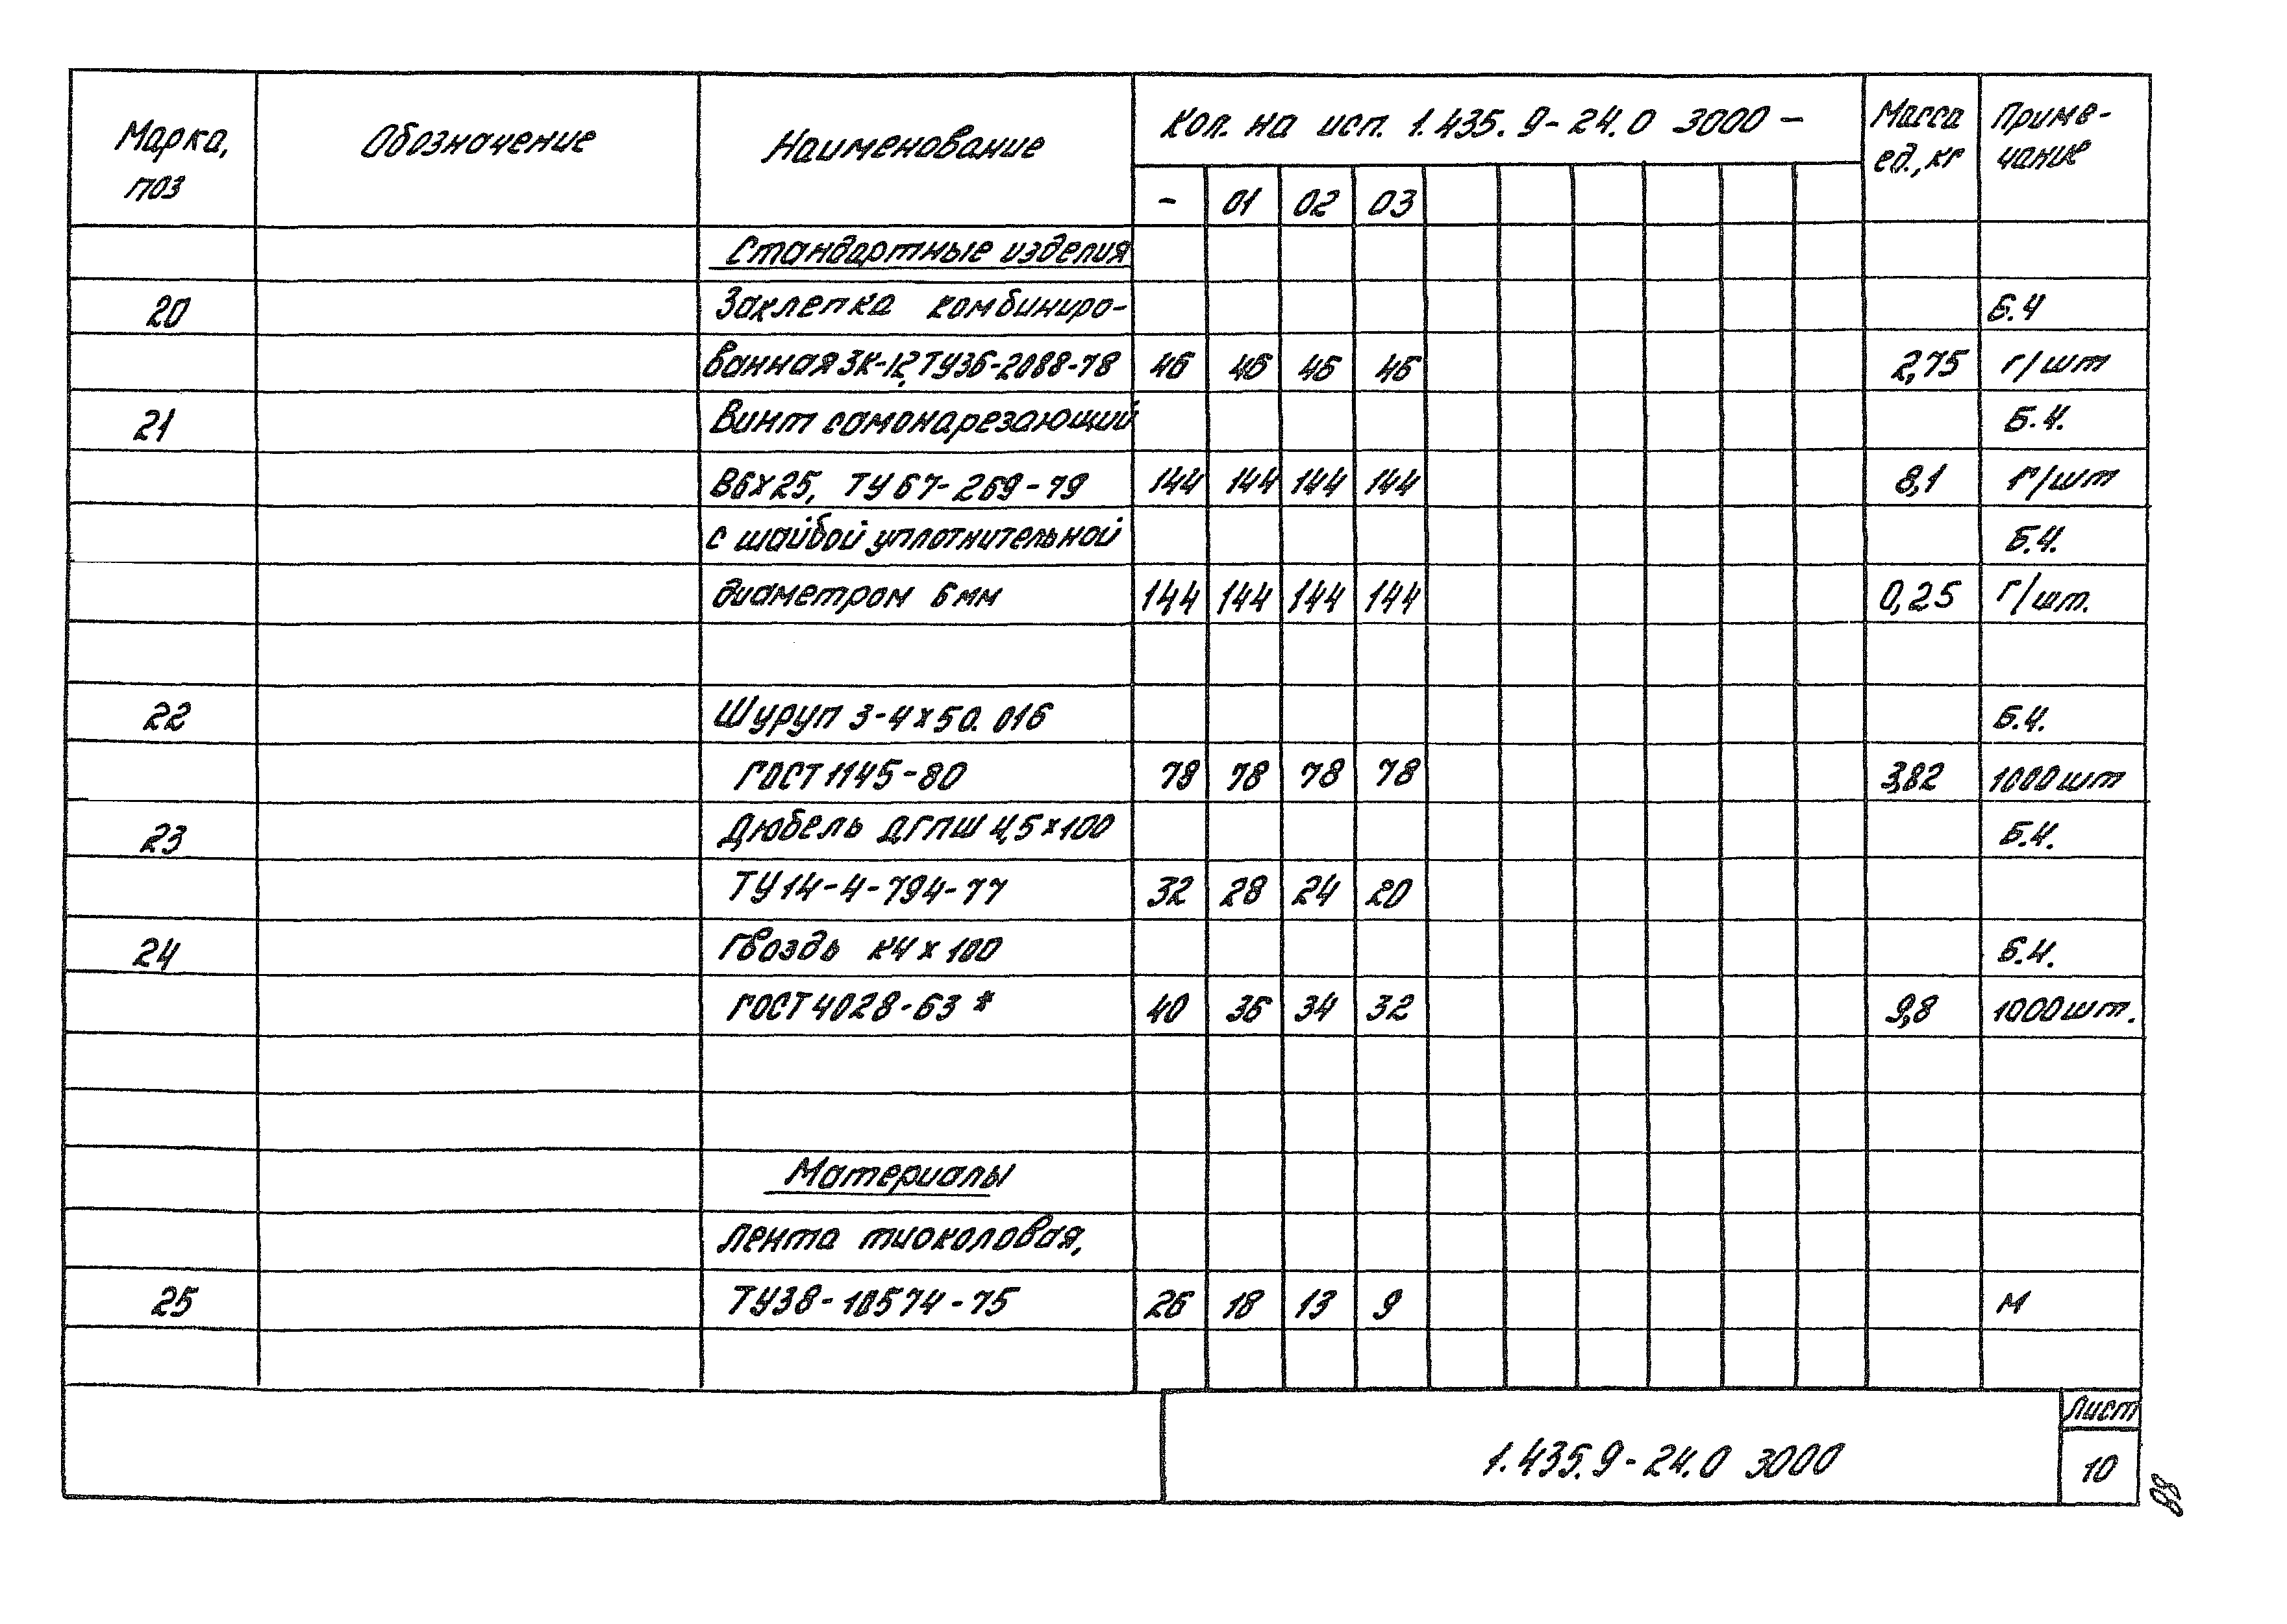 Марка, поз | Обозначение | Наименование | Кол. на исп. 1.435.9-24.0 3000 – | Масса ед., кг | Приме-чание
– | 01 | 02 | 03
Стандартные изделия
20 | Заклепка комбиниро- | Б.Ч
ванная ЗК-12, ТУ36-2088-78 | 46 | 46 | 46 | 46 | 2,75 | г/шт
21 | Винт самонарезающий | Б.Ч.
В6х25, ТУ 67-269-79 | 144 | 144 | 144 | 144 | 8,1 | г/шт
с шайбой уплотнительной | Б.Ч.
диаметром 6 мм | 144 | 144 | 144 | 144 | 0,25 | Г/шт.
22 | Шуруп 3-4х50.016 | Б.Ч.
ГОСТ 1145-80 | 78 | 78 | 78 | 78 | 3,82 | 1000 шт
23 | Дюбель ДГПШ 4,5х100 | Б.Ч.
ТУ 14-4-794-77 | 32 | 28 | 24 | 20
24 | Гвоздь К4х100 | Б.Ч.
ГОСТ 4028-63* | 40 | 36 | 34 | 32 | 9,8 | 1000 шт.
Материалы
Лента тиоколовая,
25 | ТУ38-10574-75 | 26 | 18 | 13 | 9 | М
1.435.9-24.0 3000
Лист
10
88